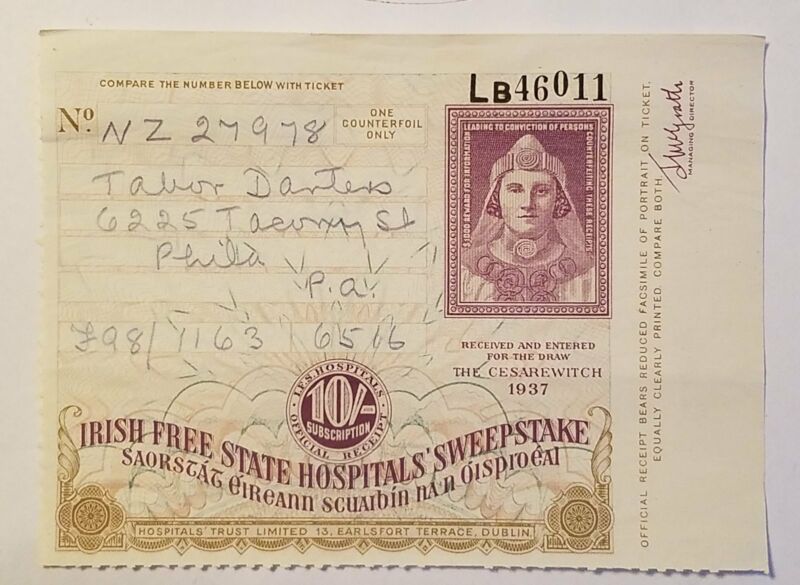 COMPARE THE NUMBER BELOW WITH TICKET
LB46011
No.
NZ 27978
ONE
COUNTERFOIL
ONLY
LEADING TO CONVICTION OF PERSONS
$1000 REWARD FOR INFORMATION
COUNTERFEITING THESE RECEIPTS
Tabor Darters
6225 Tacony St
Phila
P.a.
£98/1163 6516
RECEIVED AND ENTERED
FOR THE DRAW
THE CESAREWITCH
1937
I.F.S. HOSPITALS
10/-
SUBSCRIPTION
OFFICIAL RECEIPT
IRISH FREE STATE HOSPITALS' SWEEPSTAKE
SAORSTÁT ÉIREANN SCUAIBÍN NA N OISPIDÉAL
HOSPITALS' TRUST LIMITED 13, EARLSFORT TERRACE, DUBLIN.
OFFICIAL RECEIPT BEARS REDUCED FACSIMILE OF PORTRAIT ON TICKET.
EQUALLY CLEARLY PRINTED. COMPARE BOTH.
J McGrath
MANAGING DIRECTOR